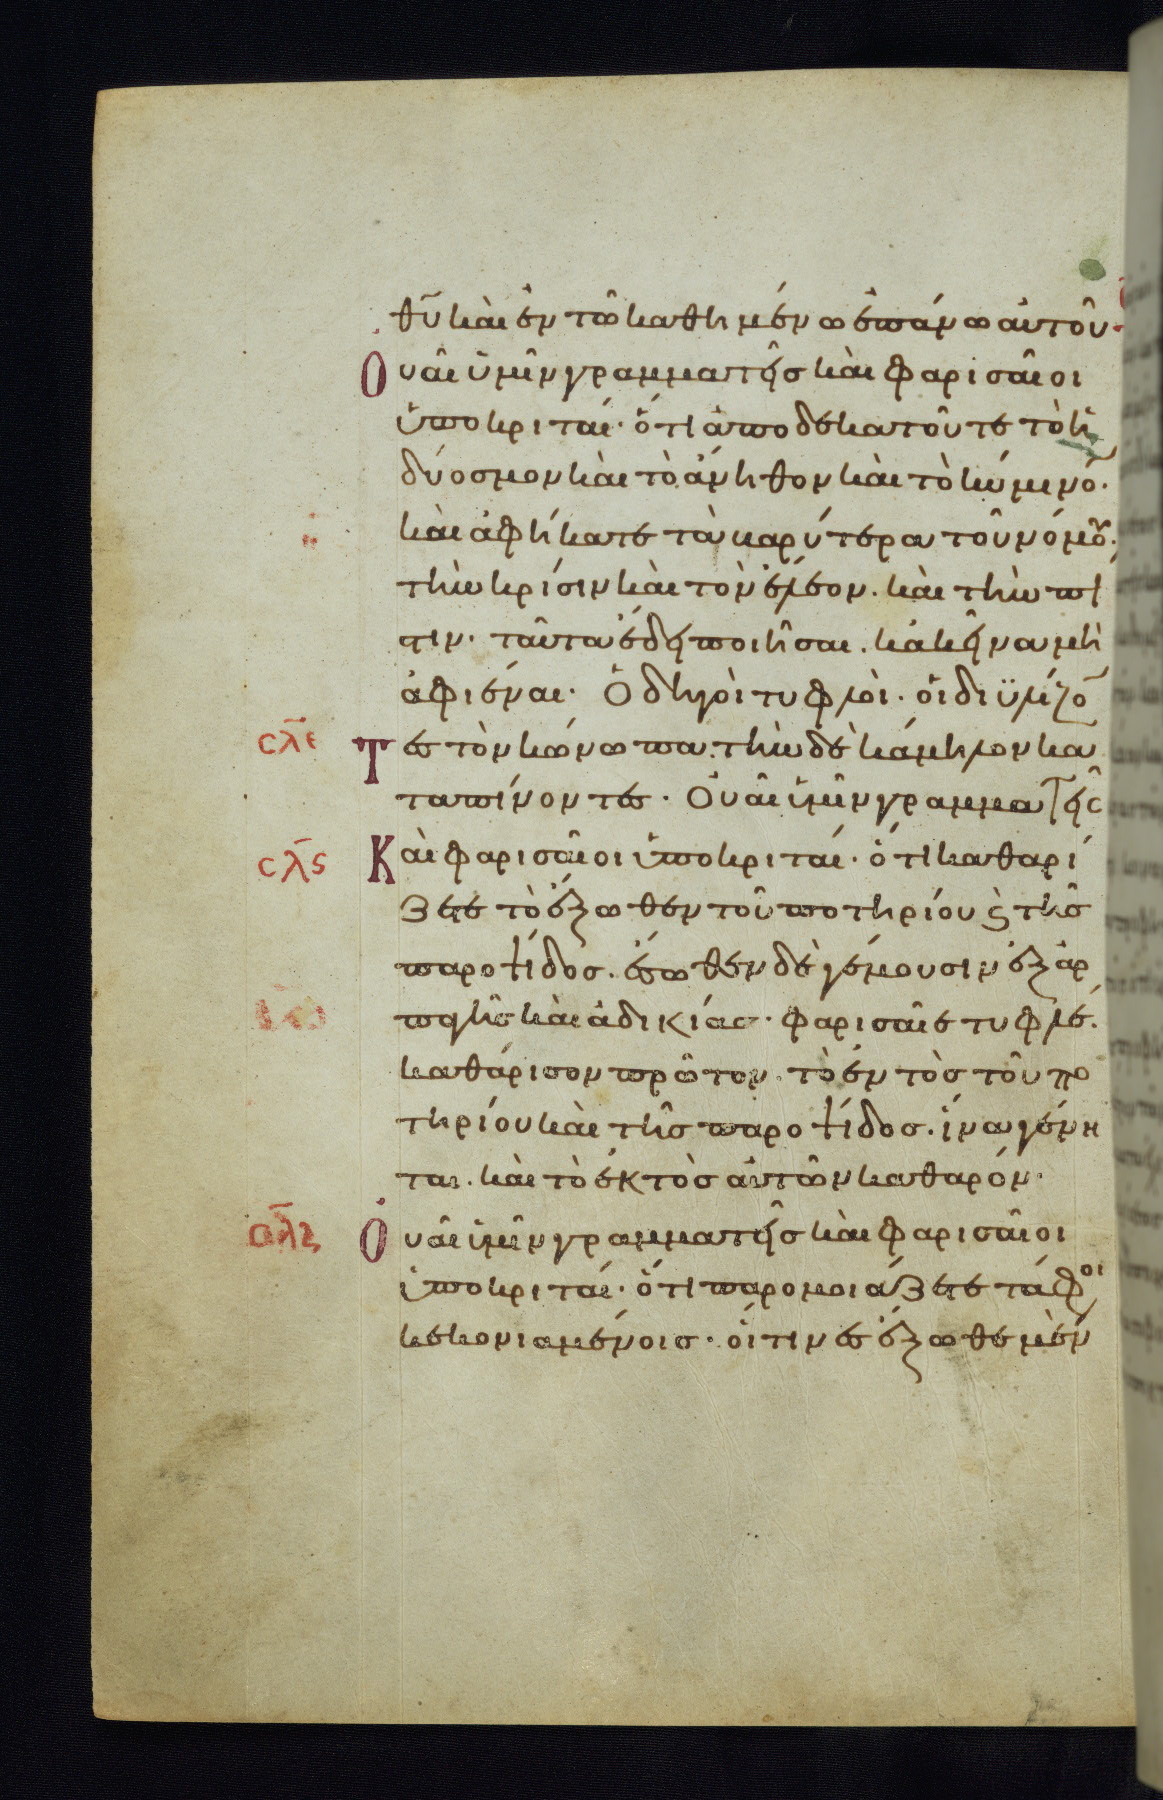 θῦ καὶ ἐν τῶ καθημένω ἐπάνω αὐτοῦ·
Οὐαὶ ὑμῖν γραμματεῖς καὶ φαρισαῖοι
ὑποκριταί· ὅτι ἀποδεκατοῦτε τὸ ἡ
δύοσμον καὶ τὸ ἄνηθον καὶ τὸ κύμινο̅·
καὶ ἀφήκατε τὰ βαρύτερα τοῦ νόμου·
τὴν κρίσιν καὶ τὸν ἔλεον. καὶ τὴν πί
στιν· ταῦτα ἔδει ποιῆσαι. κἀκεῖνα μὴ
ἀφιέναι· Ὁδηγοὶ τυφλοὶ· οἱ διϋλίζο̅
σλε Τες τὸν κώνωπα. τὴν δὲ κάμηλον κα
ταπίνοντες· Οὐαὶ ὑμῖν γραμματεῖς
σλς Καὶ φαρισαῖοι ὑποκριταί· ὅτι καθαρί
ζετε τὸ ἔξωθεν τοῦ ποτηρίου ϗ τῆς
παροψίδος. ἔσωθεν δὲ γέμουσιν ἐξ ἁρ
παγῆς καὶ ἀδικίας· φαρισαῖε τυφλέ.
καθάρισον πρῶτον τὸ ἐντὸς τοῦ πο
τηρίου καὶ τῆς παροψίδος. ἵνα γένη
ται. καὶ τὸ ἐκτὸς αὐτῶν καθαρόν·
σλζ Οὐαὶ ὑμῖν γραμματεῖς καὶ φαρισαῖοι
ὑποκριταί· ὅτι παρομοιάζετε τάφοι
κεκονιαμένοις· οἵτινες ἔξωθε μὲν